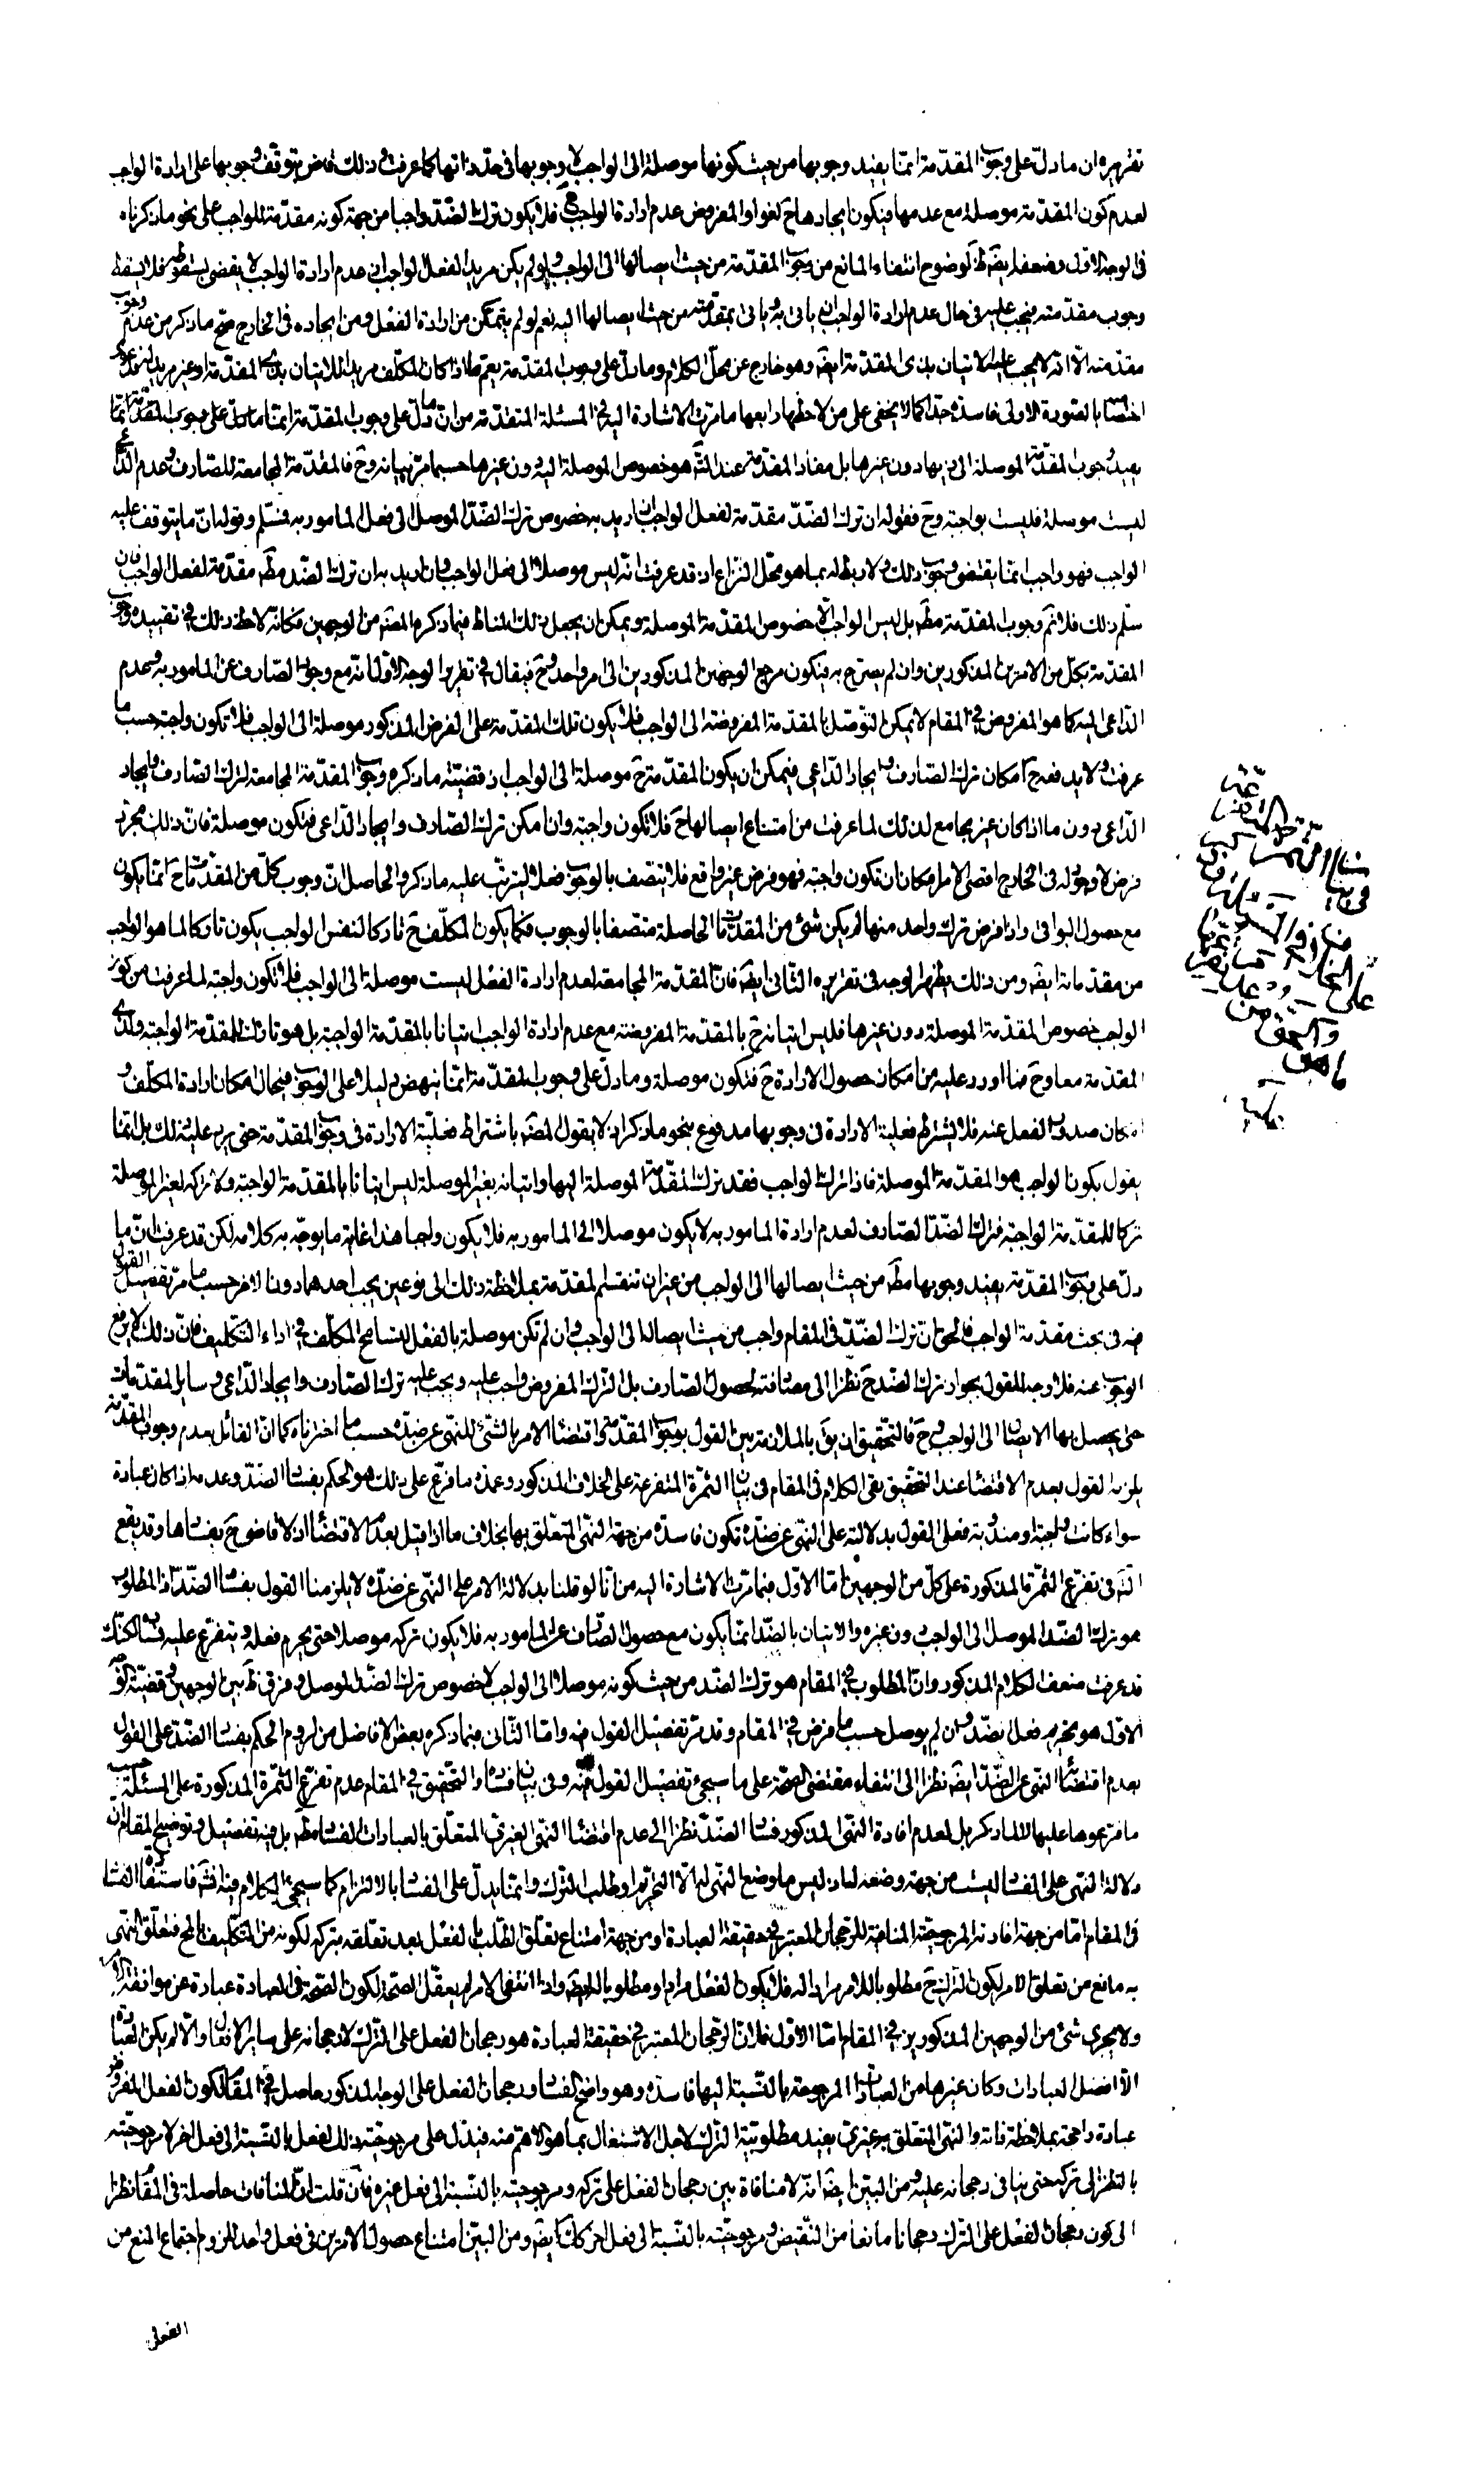 تقريره ان ما دلّ على وجوب المقدّمة انّما يفيد وجوبها من حيث كونها موصلة الى الواجب لا وجوبها فى حدّ ذاتها كما عرفت و ذلك قاض بتوقّف وجوبها على ارادة الواجب
لعدم كون المقدّمة موصلة مع عدمها فيكون ايجادها ح لغوا و المفروض عدم ارادة الواجب ح فلا يكون ترك الضّدّ واجبا من جهة كونه مقدّمة للواجب على نحو ما ذكرناه
فى الوجه الاوّل و ضعفه ايضا ظ لوضوح انتفاء المانع من وجوب المقدّمة من حيث ايصالها الى الواجب و لو لم يكن مريدا لفعل الواجب اذ عدم ارادة الواجب لا يقضى بسقوطه فلا يسقط
وجوب مقدّمته فيجب عليه فى حال عدم ارادة الواجب ان ياتى به و ياتى بمقدّمته من حيث ايصالها اليه نعم لو لم يتمكّن من ارادة الفعل و من ايجاده فى الخارج صحّ ما ذكر من عدم وجوب
مقدّمته الّا انّه لا يجب عليه الاتيان بذى المقدّمة ايضا و هو خارج عن محلّ الكلام و ما دلّ على وجوب المقدّمة يعمّ ما اذا كان المكلّف مريدا للاتيان بذى المقدّمة او غير مريد له فدعوى
اختصاصه بالصّورة الاولى فاسدة جدّا كما لا يخفى على من لاحظها رابعها ما مرّت الاشارة اليه فى المسئلة المتقدّمة من ان ما دلّ على وجوب المقدّمة انّما
يفيد وجوب المقدّمة الموصلة الى ذيها دون غيرها بل مفاد المقدّمة عند التّ هو خصوص الموصلة اليه دون غيرها حسبما مرّ بيانه و ح فالمقدّمة المجامعة للصّارف و عدم الدّاعى
ليست موصلة فليست بواجبة و ح فقوله ان ترك الضّدّ مقدّمة لفعل الواجب ان اريد به خصوص ترك الضّدّ الموصل الى فعل المامور به فمسلّم و قوله انّ ما يتوقّف عليه
الواجب فهو واجب انّما يقتضى وجوب ذلك و لا ربط له بما هو محلّ النّزاع اذ قد عرفت انّه ليس موصلا الى فعل الواجب و ان اريد به ان ترك الضّد مط مقدّمة لفعل الواجب فان
سلّم ذلك فلا نم وجوب المقدّمة مط بل ليس الواجب الّا خصوص المقدّمة الموصلة و يمكن ان يجعل ذلك المناط فيما ذكره المص من الوجهين فكانّه لاحظ ذلك فى تقييده وجوب
المقدّمة بكلّ من الامرين المذكورين و ان لم يصرّح به فيكون مرجع الوجهين المذكورين الى امر واحد و ح فيقال فى تقرير الوجه الاوّل انّه مع وجود الصّارف عن المامور به و عدم
الدّاعى اليه كما هو المفروض فى المقام لا يمكن التّوصّل بالمقدّمة المفروضة الى الواجب فلا يكون تلك المقدّمة على الفرض المذكور موصلة الى الواجب فلا تكون واجبة حسب ما
عرفت و لا يدفعه ح امكان ترك الصّارف و ايجاد الدّاعى فيمكن ان يكون المقدّمة ح موصلة الى الواجب اذ قضيّة ما ذكره وجوب المقدّمة المجامعة لترك الصّارف و ايجاد
الدّاعى دون ما اذا كان غير مجامع لذلك لما عرفت من امتناع ايصالها ح فلا تكون واجبة و ان امكن ترك الصّارف و ايجاد الدّاعى فتكون موصلة فانّ ذلك مجرّد
فرض لا وجود له فى الخارج اقصى الامر امكان ان تكون واجبة فهو فرض غير واقع فلا يتّصف بالوجوب فضلا ليترتّب عليه ما ذكر و الحاصل انّ وجوب كلّ من المقدّمات ح انّما يكون
مع حصول البواقى و اذا فرض ترك واحد منها لم يكن شئ من المقدّمات الحاصلة متّصفا بالوجوب فكما يكون المكلّف ح تاركا لنفس الواجب يكون تاركا لما هو الواجب
من مقدماته ايضا و من ذلك يظهر الوجه فى تقريره الثّانى ايضا فانّ المقدّمة المجامعة لعدم ارادة الفعل ليست موصلة الى الواجب فلا تكون واجبة لما عرفت من كون
الواجب خصوص المقدّمة الموصلة دون غيرها فليس اتيانه ح بالمقدّمة المفروضة مع عدم ارادة الواجب اتيانا بالمقدّمة الواجبة بل هو تارك للمقدّمة الواجبة و لذى
المقدّمة معا و ح فما اورد عليه من امكان حصول الارادة ح فتكون موصلة و ما دلّ على وجوب المقدّمة انّما ينهض دليلا على الوجوب فى حال امكان ارادة المكلّف و
امكان صدور الفعل عنه فلا يشترط فعلية الارادة فى وجوبها مدفوع بنحو ما ذكر اذ لا يقول المص باشتراط فعليّة الارادة فى وجوب المقدّمة حتى يرد عليه ذلك بل انّما
يقول بكون الواجب هو المقدّمة الموصلة فاذا ترك الواجب فقد ترك المقدّمة الموصلة اليها و اتيانه بغير الموصلة ليس اتيانا بالمقدّمة الواجبة و لا تركه لغير الموصلة
تركا للمقدّمة الواجبة فترك الضّدّ الصّارف لعدم ارادة المامور به لا يكون موصلا الى المامور به فلا يكون واجبا هذا غاية ما يوجّه به كلامه لكن قد عرفت انّ ما
دلّ على وجوب المقدّمة يفيد وجوبها مط من حيث ايصالها الى الواجب من غير ان تنقسم المقدّمة بملاحظة ذلك الى نوعين يجب احدهما دون الاخر حسب ما مرّ تفصيل القول
فيه فى بحث مقدّمة الواجب فالحق ان ترك الضّدّ فى المقام واجب من حيث ايصاله الى الواجب و ان لم تكن موصلة بالفعل لتسامح المكلّف فى اداء التّكليف فانّ ذلك لا يرفع
الوجوب عنه فلا وجه للقول بجواز ترك الضّد ح نظرا الى مصادفته لحصول الصّارف بل التّرك المفروض واجب عليه و يجب عليه ترك الصّارف و ايجاد الدّاعى و ساير المقدّمات
حتّى يحصل بها الايصال الى الواجب و ح فالتّحقيق ان يق بالملازمة بين القول بوجوب المقدّمة و اقتضاء الامر بالشئ للنّهى عن ضدّه حسب ما اخترناه كما انّ القائل بعدم وجوب المقدّمة
يلزمه القول بعدم الاقتضاء عند التّحقيق بقى الكلام فى المقام فى بيان الثّمرة المتفرعة على الخلاف المذكور و عمدة ما فرّع على ذلك هو الحكم بفساد الضّدّ و عدمه اذا كان عبادة
سواء كانت واجبة او مندوبة فعلى القول بدلالته على النّهى عن ضدّه تكون فاسدة من جهة النّهى المتعلّق بها بخلاف ما اذا قيل بعدم الاقتضاء اذ لا قاضى ح بفسادها و قد يقع
التّامّل فى تفريع الثّمرة المذكورة على كلّ من الوجهين امّا الاوّل فبما مرّت الاشارة اليه من انّا لو قلنا بدلالة الامر على النّهى عن ضدّه لا يلزمنا القول بفساد الضّدّ اذ المطلوب
هو ترك الضّد الموصل الى الواجب دون غيره و الاتيان بالضّدّ انّما يكون مع حصول الصّارف عن المامور به فلا يكون تركه موصلا حتّى يحرم فعله و يتفرّع عليه فساده لكنّك
قد عرفت ضعف الكلام المذكور و انّ المطلوب فى المقام هو ترك الضّد من حيث كونه موصلا الى الواجب لا خصوص ترك الضّدّ الموصل و فرق ظ بين الوجهين و قضيّة الوجه
الاوّل هو تحريم فعل الضّدّ و ان لم يوصل حسب ما فرض فى المقام و قد مرّ تفصيل القول فيه و امّا الثّانى فبما ذكره بعض الافاضل من لزوم الحكم بفساد الضّدّ على القول
بعدم اقتضاء النّهى عن الضّدّ ايضا نظرا الى انتفاء مقتضى الصّحّة على ما سيجئ تفصيل القول فيه و فى بيان فساده و التّحقيق فى المقام عدم تفرّع الثّمرة المذكورة على المسئلة حسب
ما فرّعوها عليها لا لما ذكر بل لعدم افادة النّهى المذكور فساد الضّدّ نظرا الى عدم اقتضاء النّهى الغيرى المتعلّق بالعبادات الفساد مط بل فيه تفصيل و توضيح المقام انّ
دلالة النّهى على الفساد ليست من جهة وضعه له اذ ليس ما وضع النّهى له الّا التّحريم او طلب التّرك و انّما يدلّ على الفساد بالالتزام كما سيجئ الكلام فيه انش فاستفادة الفساد
فى المقام امّا من جهة افادته المرجوحيّة المنافية للرّجحان المعتبر فى حقيقة العبادة او من جهة امتناع تعلّق الطّلب بالفعل بعد تعلّقه بتركه لكونه من التّكليف بالمحال فتعلّق النّهى
به مانع من تعلّق الامر لكون التّرك ح مطلوبا للامر مرادا له فلا يكون الفعل مرادا و مطلوبا له ايضا و اذا انتفى الامر لم يعقل الصّحّة لكون الصّحّة فى العبادة عبارة عن موافقة الامر
و لا يجرى شئ من الوجهين المذكورين فى المقام امّا الاوّل فلانّ الرّجحان المعتبر فى حقيقة العبادة هو رجحان الفعل على التّرك لا رجحانه على ساير الافعال و الّا لم يكن العبادة
الّا افضل العبادات و كان غيرها من العبادات المرجوحة بالنّسبة اليها فاسدة و هو واضح الفساد و رجحان الفعل على الوجه المذكور حاصل فى المقام لكون الفعل المفروض
عبادة راجحة بملاحظة ذاته و النّهى المتعلّق به غيرى يفيد مطلوبيّة التّرك لاجل الاشتغال بما هو الاهم منه فيدلّ على مرجوحيّة ذلك الفعل بالنّسبة الى فعل اخر لا مرجوحيّته
بالنّظر الى تركه حتى ينافى رجحانه عليه و من البيّن ايضا انّه لا منافاة بين رجحان الفعل على تركه و مرجوحيّته بالنّسبة الى فعل غيره فان قلت انّ المنافاة حاصلة فى المقام نظرا
الى كون رجحان الفعل على التّرك رجحانا مانعا من النّقيض و مرجوحيّته بالنّسبة الى فعل اخر كك ايضا و من البيّن امتناع حصول الامرين فى فعل واحد للزوم اجتماع المنع من
الفعل